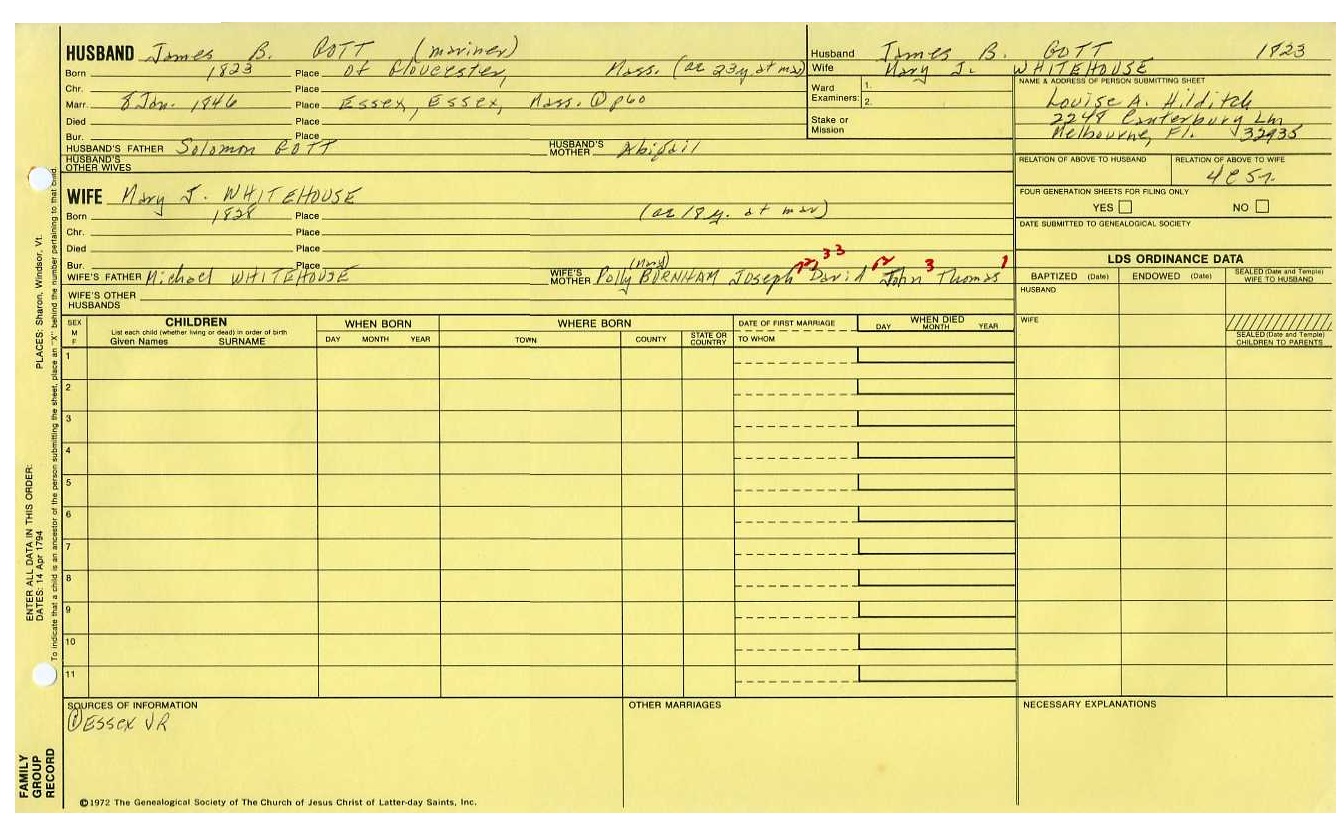 HUSBAND James B. GOTT (mariner)
Born 1823 Place of Gloucester, Mass. (ae 23y at mar)
Chr. Place
Marr. 8 Jan. 1846 Place Essex, Essex, Mass. ① p60
Died Place
Bur. Place
HUSBAND'S FATHER Solomon GOTT HUSBAND'S MOTHER Abigail
HUSBAND'S OTHER WIVES
Husband James B. GOTT 1823
Wife Mary J. WHITEHOUSE
Ward Examiners: 1. 2.
Stake or Mission
NAME & ADDRESS OF PERSON SUBMITTING SHEET
Louise A. Hilditch
2248 Canterbury Ln
Melbourne, Fl. 32935
RELATION OF ABOVE TO HUSBAND RELATION OF ABOVE TO WIFE
4C5r
FOUR GENERATION SHEETS FOR FILING ONLY
YES NO
DATE SUBMITTED TO GENEALOGICAL SOCIETY
WIFE Mary J. WHITEHOUSE
Born 1828 Place (ae 18 y. at mar)
Chr. Place
Died Place
Bur. Place
WIFE'S FATHER Michael WHITEHOUSE WIFE'S MOTHER Polly (Mary) BURNHAM Joseph David John 3 Thomas 1
33
WIFE'S OTHER HUSBANDS
LDS ORDINANCE DATA
BAPTIZED (Date) ENDOWED (Date) SEALED (Date and Temple) WIFE TO HUSBAND
HUSBAND
WIFE
SEALED (Date and Temple) CHILDREN TO PARENTS
SEX M F
CHILDREN
List each child (whether living or dead) in order of birth
Given Names SURNAME
WHEN BORN
DAY MONTH YEAR
WHERE BORN
TOWN COUNTY STATE OR COUNTRY
DATE OF FIRST MARRIAGE
TO WHOM
WHEN DIED
DAY MONTH YEAR
1
2
3
4
5
6
7
8
9
10
11
SOURCES OF INFORMATION
① Essex VR
OTHER MARRIAGES
NECESSARY EXPLANATIONS
©1972 The Genealogical Society of The Church of Jesus Christ of Latter-day Saints, Inc.
FAMILY GROUP RECORD
ENTER ALL DATA IN THIS ORDER:
DATES: 14 Apr 1794
PLACES: Sharon, Windsor, Vt.
To indicate that a child is an ancestor of the person submitting the sheet, place an "X" behind the number pertaining to that child.